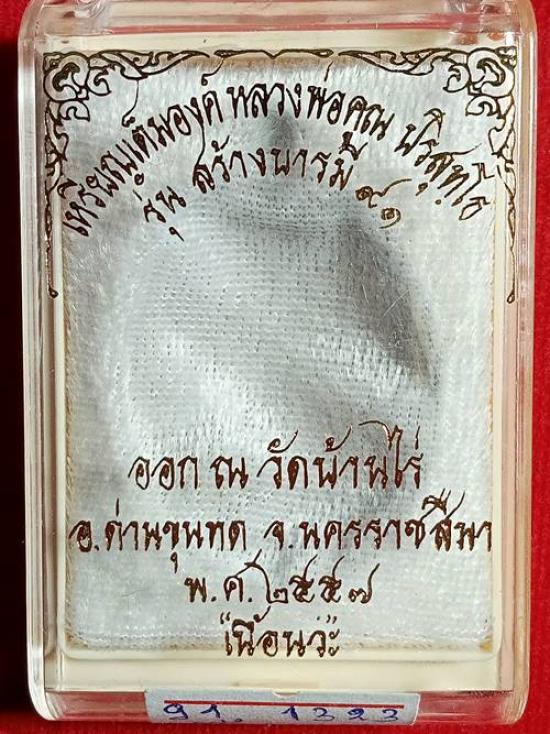 เหรียญเต็มองค์ หลวงพ่อคูณ ปริสุทฺโธ
รุ่น สร้างบารมี ๙๑
ออก ณ วัดบ้านไร่
อ.ด่านขุนทด จ.นครราชสีมา
พ.ศ.๒๕๕๗
"เนื้อนวะ"
91. 1323